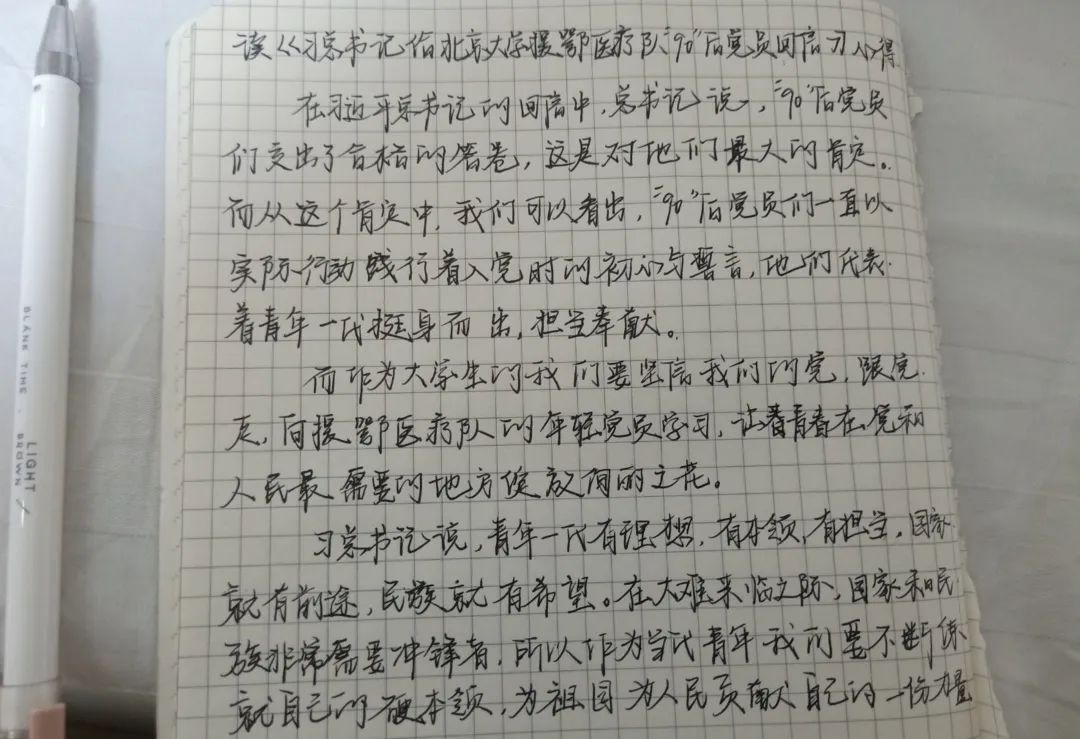 读《习总书记给北京大学援鄂医疗队"90"后党员回信》心得
在习近平总书记的回信中,总书记说,"90"后党员
们交出了合格的答卷,这是对他们最大的肯定。
而从这个肯定中,我们可以看出,"90"后党员们一直以
实际行动践行着入党时的初心与誓言,他们代表
着青年一代挺身而出,担当奉献。
而作为大学生的我们要坚信我们的党,跟党
走,向援鄂医疗队的年轻党员学习,让青春在党和
人民最需要的地方绽放绚丽之花。
习总书记说,青年一代有理想,有本领,有担当,国家
就有前途,民族就有希望。在大难来临之际,国家和民
族非常需要冲锋者,所以作为当代青年我们要不断练
就自己的硬本领,为祖国为人民贡献自己的一份力量
BLANK TIME · LIGHT BROWN